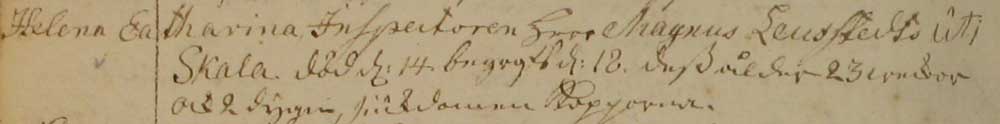 Helena Ca tharina, Inspectoren Herr Magnus Leuffstedts uti
Skala. död d: 14. begrofs d: 18. deß ålder 23 weckor
och 2 dygn, siukdomen Kopporna.